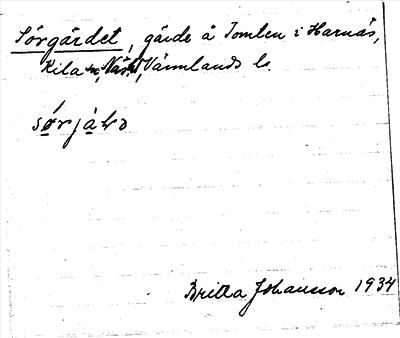 Sörgärdet, gärde å Tomlen i Harnäs,
Kila sn, Näs hd, Värmlands l.
Britta Johansson 1934